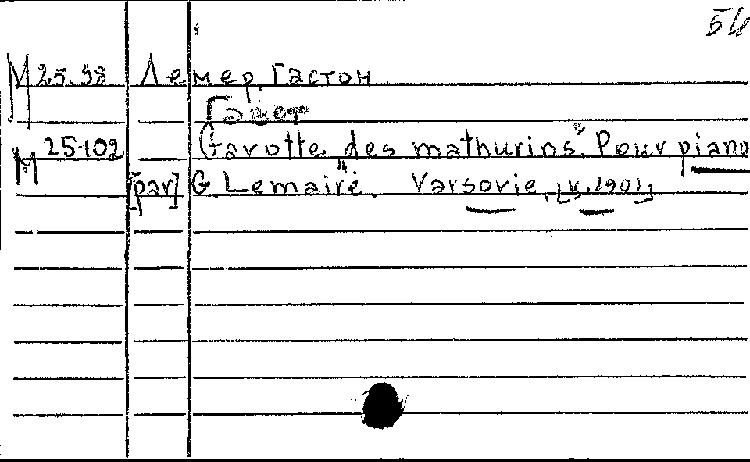 М 25.98 Лемер, Гастон
Гавот
М 25-102 Gavotte des mathurins. Pour piano
[par] G Lemaire. Varsovie, [v.1901]